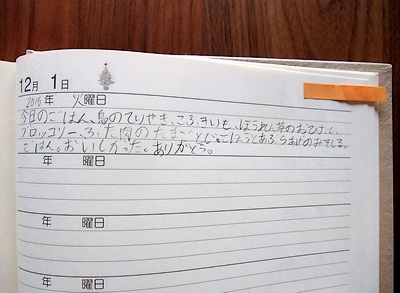 12月 1日
2015年 火曜日
今日のごはん、鳥のてりやき、こふきいも、ほうれん草のおひたし、
ブロッコリー、ぶた肉のたまごとじ、ごぼうとあぶらあげのみそしる。
ごはん。おいしかった。ありがとう。
年 曜日
年 曜日
年 曜日